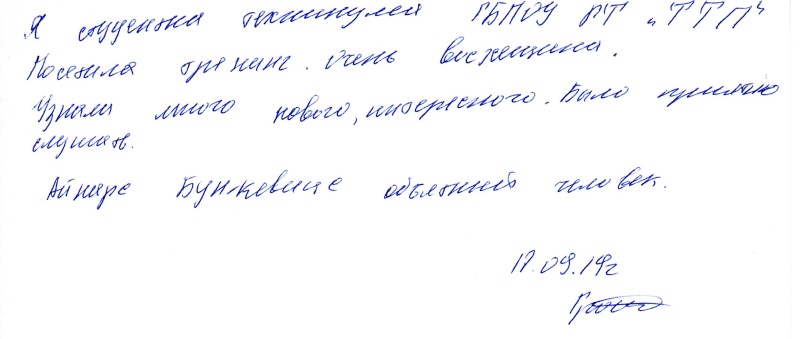 Я студентка техникумса ГБПОУ РТ "ТТП"
Посетила тренинг. Очень восхещина.
Узнали много нового, интересного. Было приятно
слушать.
Айнарс Бункевише объятный человек.
18.09.19г